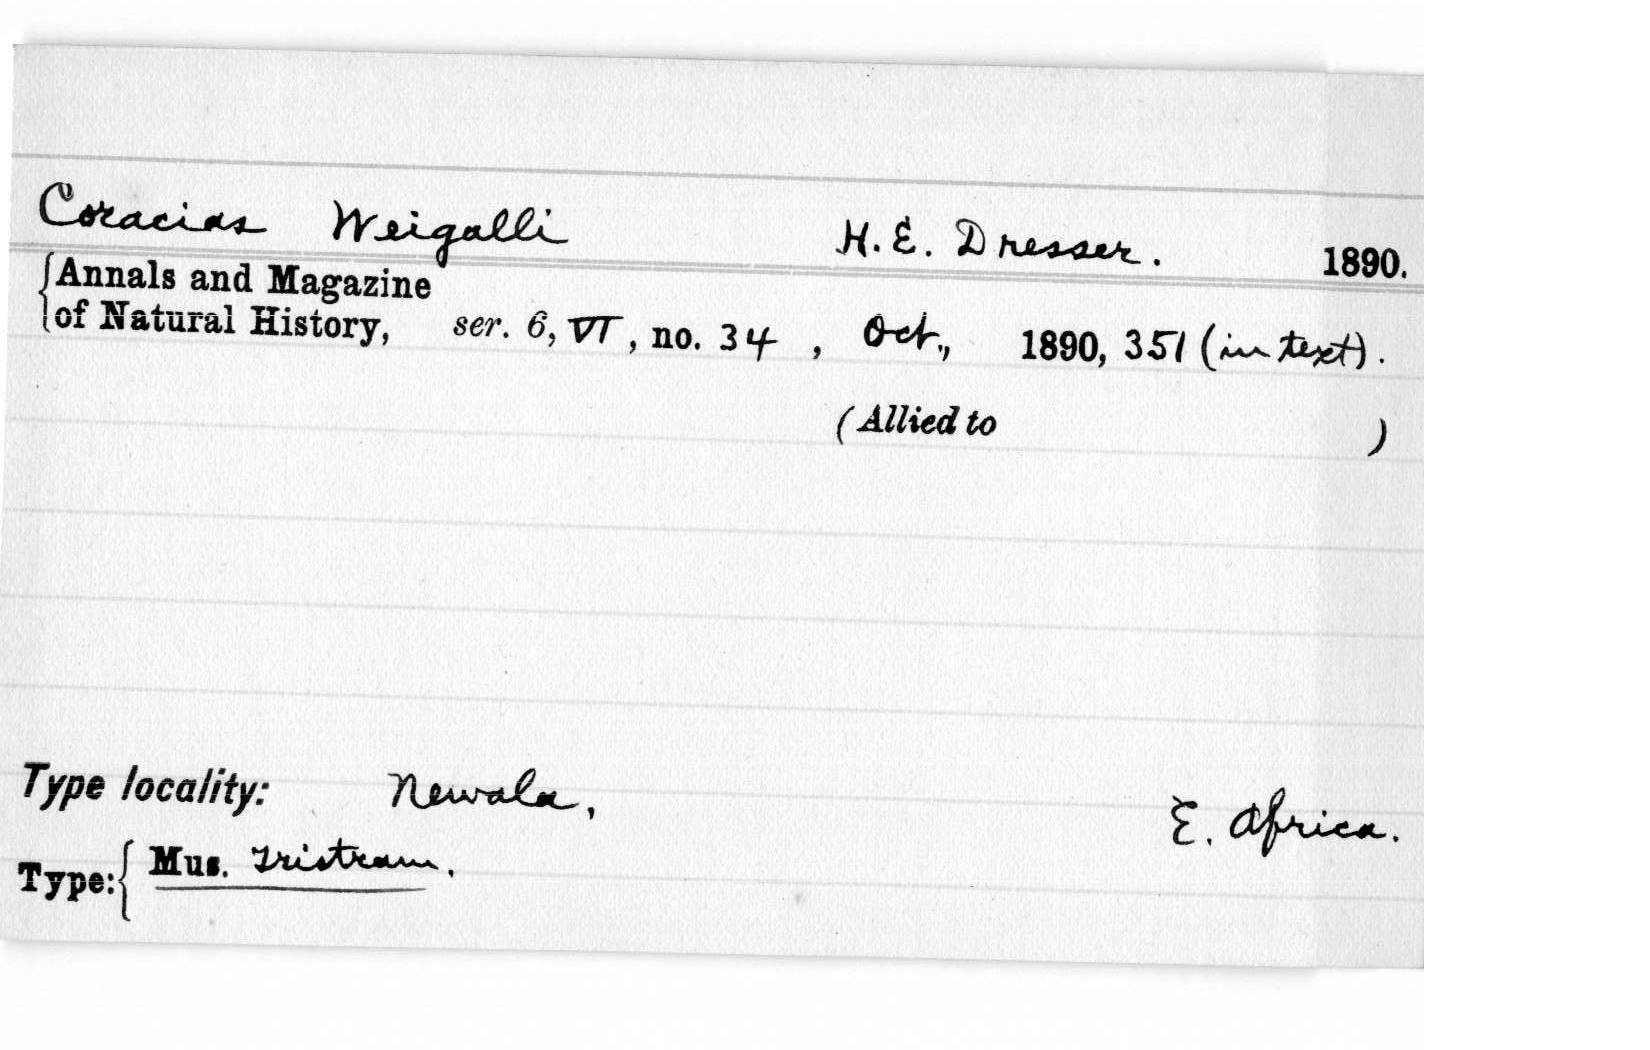 Coracias Weigalli H. E. Dresser. 1890.
{Annals and Magazine
of Natural History, ser. 6, VI, no. 34, Oct., 1890, 351 (in text).
(Allied to )
Type locality: Newala, E. Africa.
Type:{ Mus. Tristram.